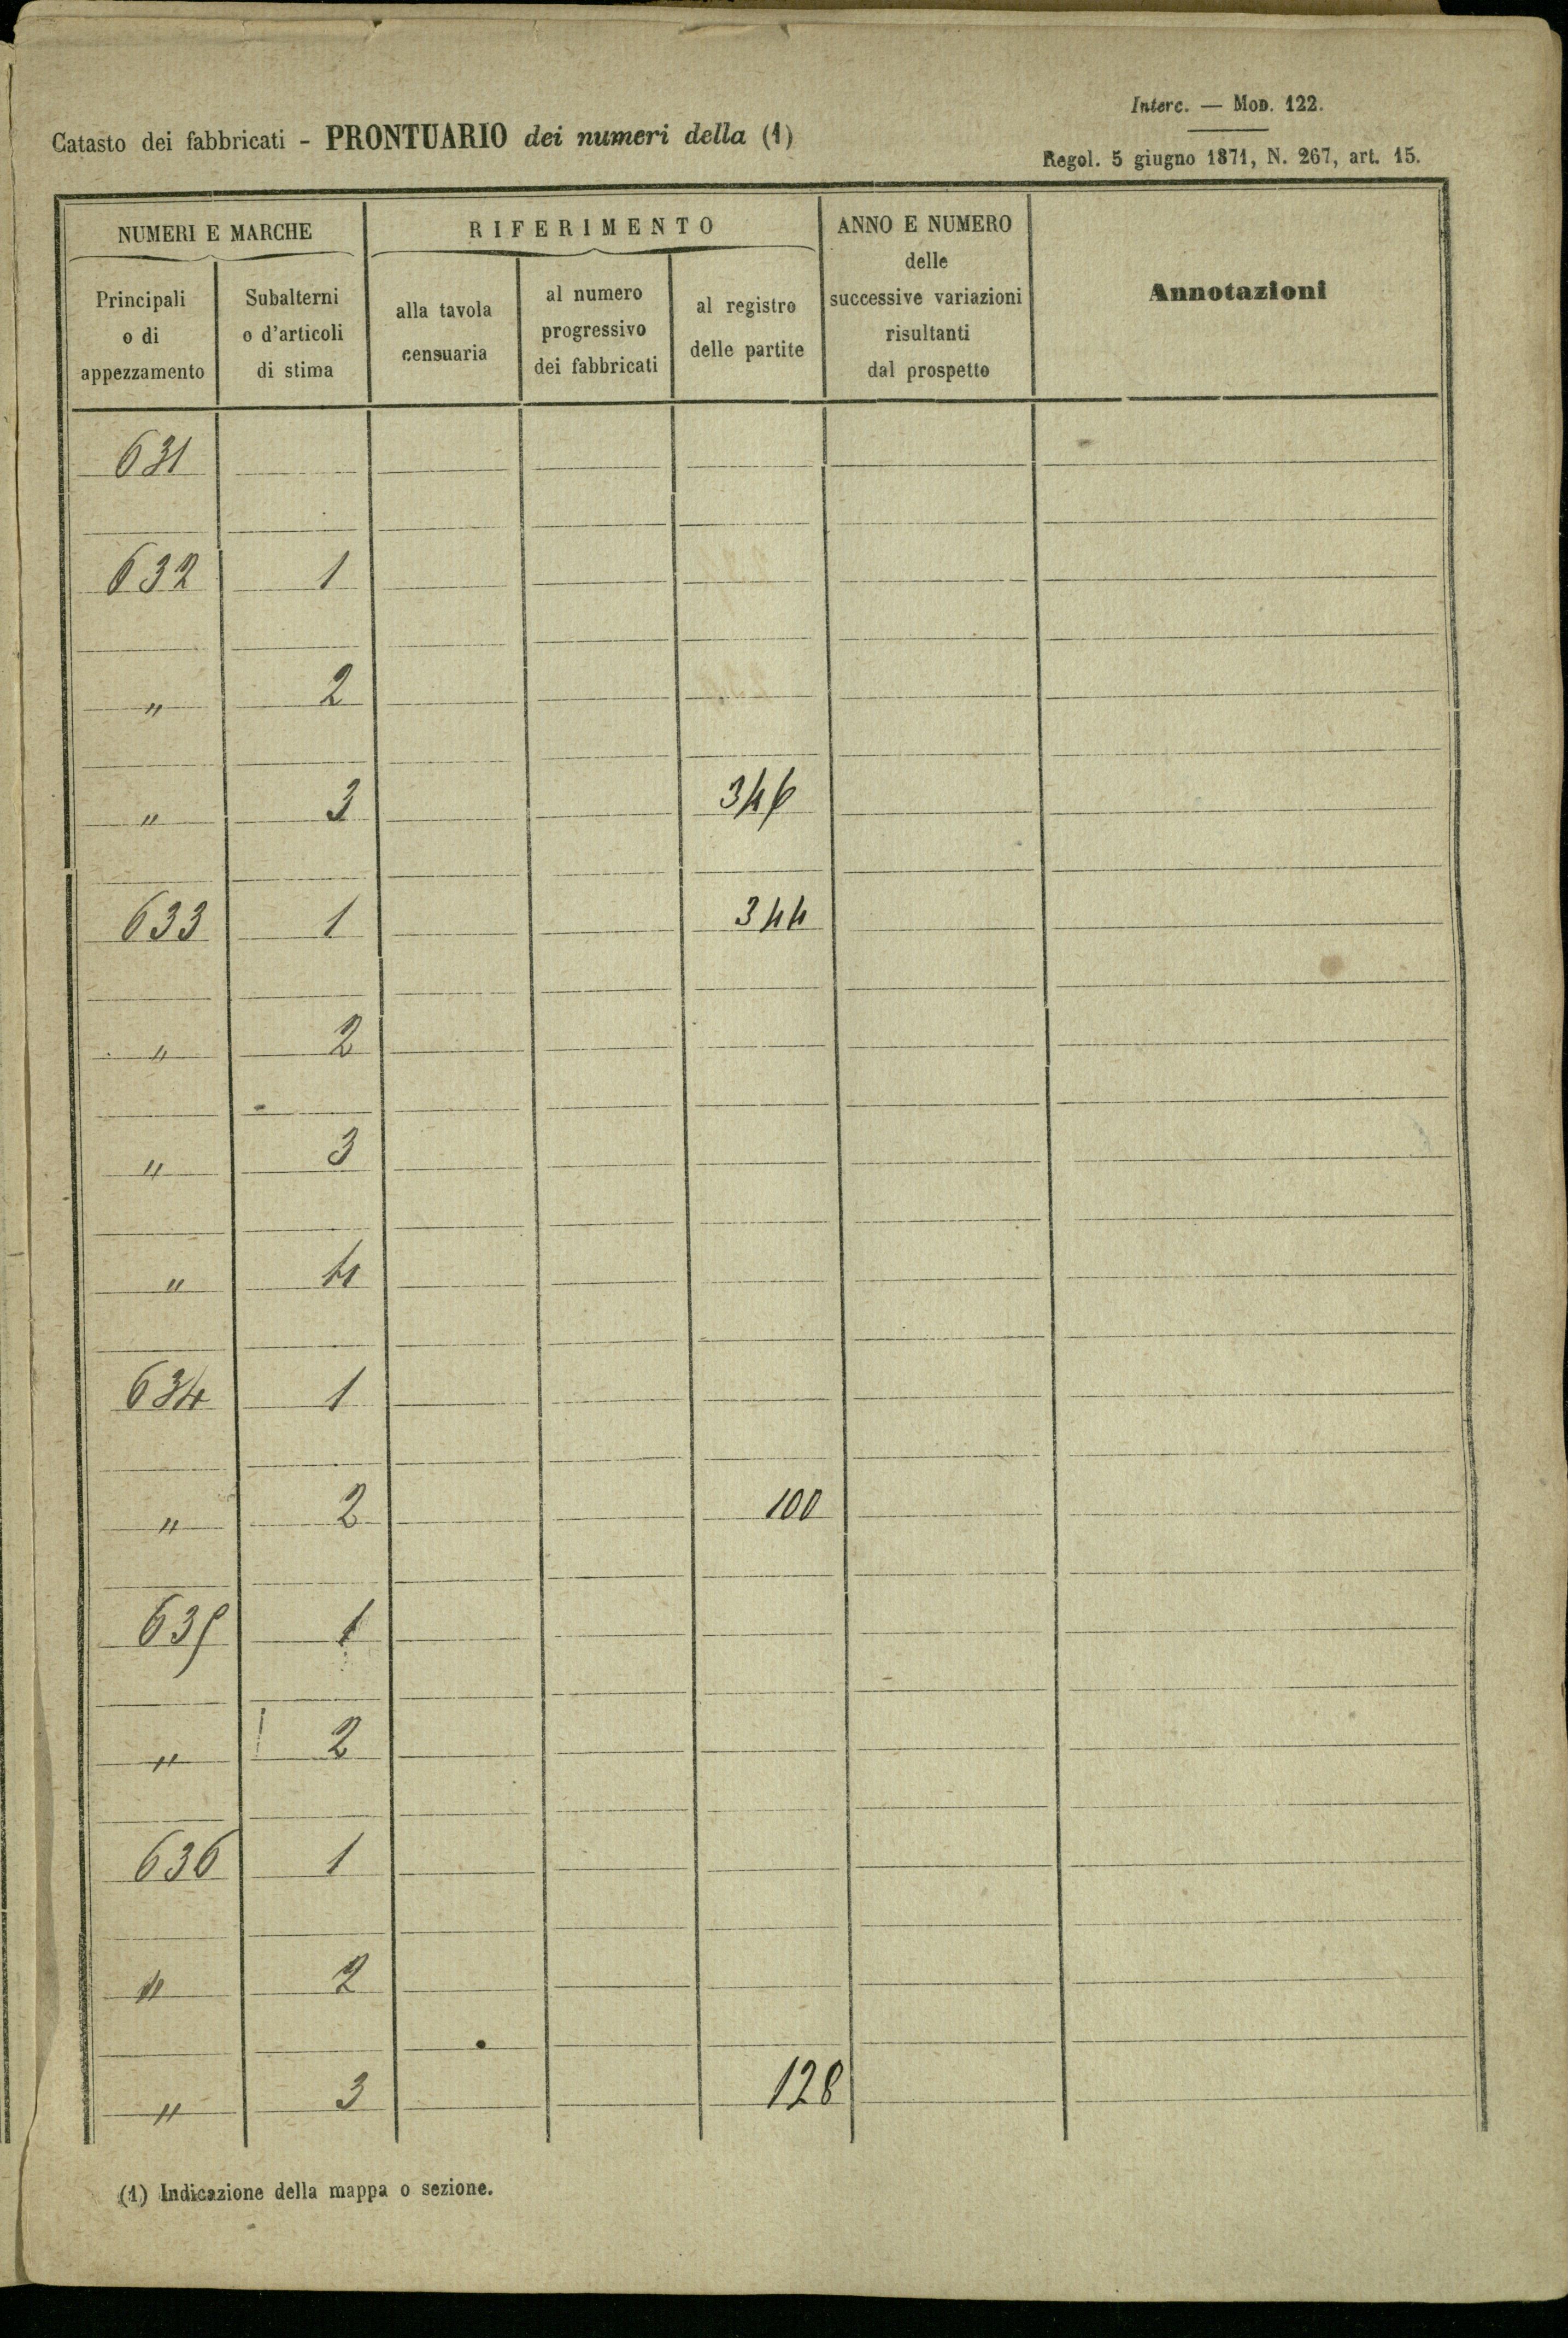 Interc. — Mod. 122.
Catasto dei fabbricati - PRONTUARIO dei numeri della (1)
Regol. 5 giugno 1871, N. 267, art. 15.
NUMERI E MARCHE
RIFERIMENTO
ANNO E NUMERO
delle
successive variazioni
risultanti
dal prospetto
Annotazioni
Principali
o di
appezzamento
Subalterni
o d'articoli
di stima
alla tavola
censuaria
al numero
progressivo
dei fabbricati
al registro
delle partite
631
632 1
" 2
" 3 346
633 1 344
" 2
" 3
" 4
634 1
" 2 100
635 1
" 2
636 1
" 2
" 3 128
(1) Indicazione della mappa o sezione.